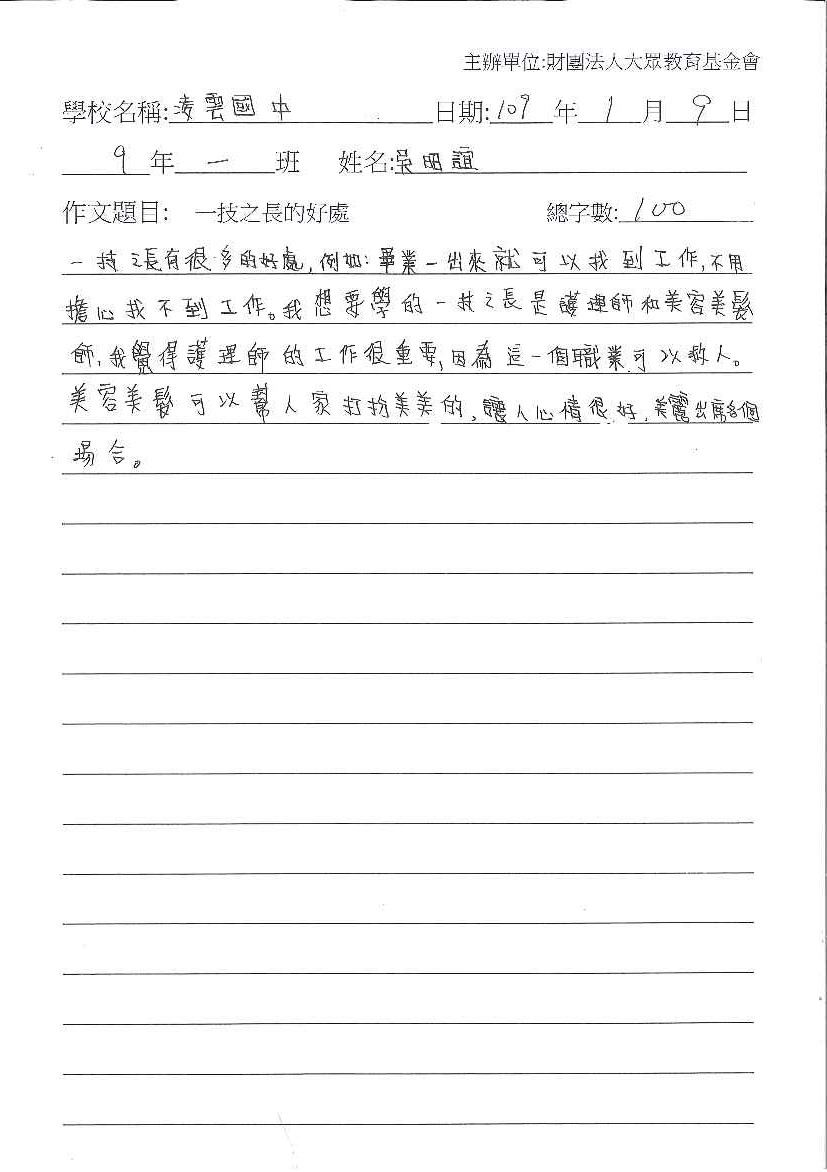 主辦單位:財團法人大眾教育基金會
學校名稱:凌雲國中 日期:109年1月9日
9年一班 姓名:吳明誼
作文題目: 一技之長的好處 總字數:100
一技之長有很多的好處,例如:畢業一出來就可以找到工作,不用
擔心找不到工作。我想要學的一技之長是護理師和美容美髮
師,我覺得護理師的工作很重要,因為這一個職業可以救人。
美容美髮可以幫人家打扮美美的,讓人心情很好,美麗出席各個
場合。